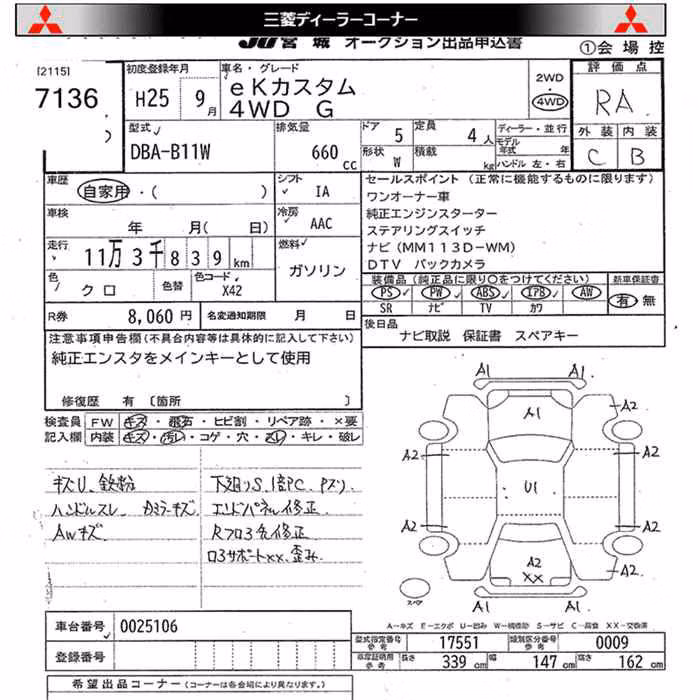 三菱ディーラーコーナー
JU宮城 オークション出品申込書
①会場控
[2115]
7136
初度登録年月
H25 9月
車名・グレード
eKカスタム
4WD G
2WD
・
4WD
評価点
RA
外装 内装
C B
型式
DBA-B11W
排気量
660 cc
ドア 5
定員 4人
形状 W
積載 kg
ディーラー・並行
モデル年式 年
ハンドル 左・右
車歴
自家用・( )
シフト IA
車検 年 月( 日)
冷房 AAC
走行 11万3千839km
燃料 ガソリン
色 クロ
色替
色コード X42
R券 8,060円
名変通知期限 月 日
セールスポイント (正常に機能するものに限ります)
ワンオーナー車
純正エンジンスターター
ステアリングスイッチ
ナビ(MM113D-WM)
DTV バックカメラ
装備品(純正品に限り○をつけてください)
新車保証書
PS PW ABS エアB AW
有・無
SR ナビ TV カワ
後日品
ナビ取説 保証書 スペアキー
注意事項申告欄(不具合内容等は具体的に記入して下さい)
純正エンスタをメインキーとして使用
修復歴 有 〔箇所 〕
検査員 FW キズ・飛石・ヒビ割・リペア跡・×要
記入欄 内装 キズ・汚れ・コゲ・穴・スレ・キレ・破レ
キズU、鉄粉
ハンドルスレ
AWキズ
下廻りS、
エンドパネル修正
Rフロア先修正
ロアサポート××、歪み
A1 A1
A1
A2 A2
A2 A2
U1
A2 A2
A2
××
A2
A1 A1
スペア
A-キズ E-エクボ U-凹み W-補修跡 S-サビ C-腐食 XX-交換済
車台番号 0025106
登録番号
型式指定番号 参考 17551
類別区分番号 参考 0009
車庫証明用 参考 長さ 339cm 幅 147cm 高さ 162cm
希望出品コーナー (コーナーは各会場により異なります。)